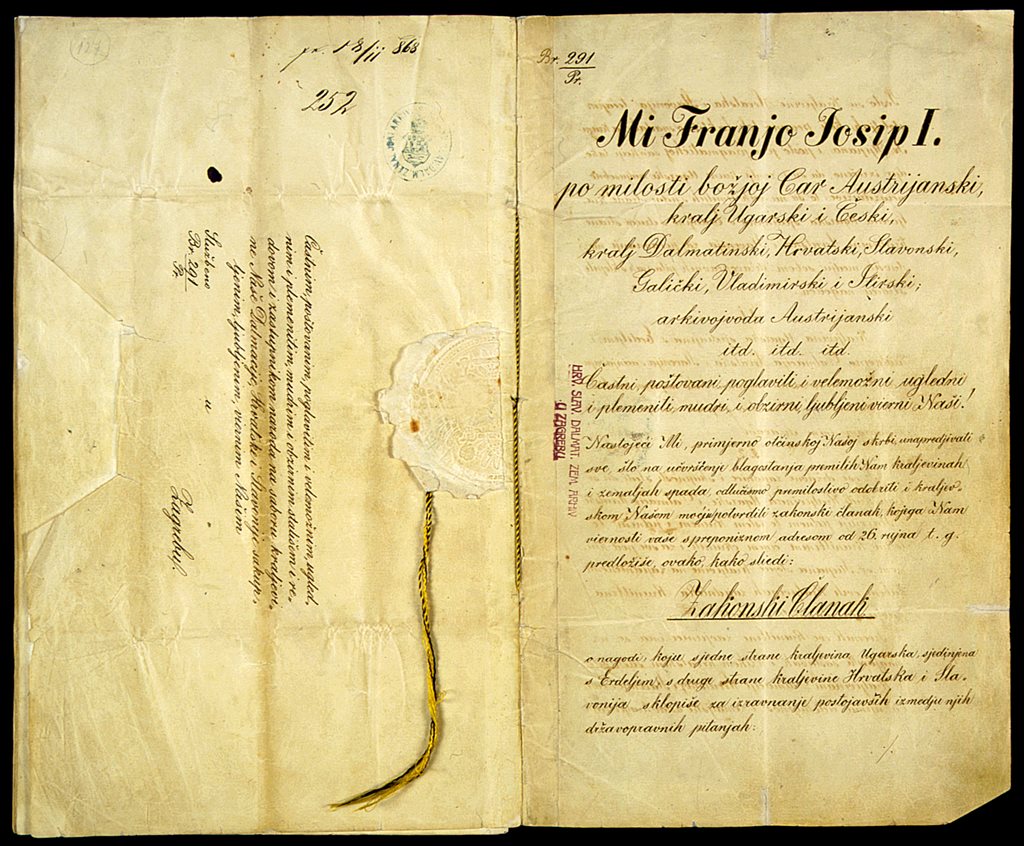 (127)
pr. 18/11 868
252
Častnim, poštovanim, poglavitim i velemožnim, ugled,
nim i plemenitim, mudrim i obzirnim stališem i re,
dovom i zastupnikom naroda na saboru kraljevi,
ne Naše Dalmacije, Hrvatske i Slavonije sakup,
ljenim, ljubljenim, viernim Našim
Službeno u Zagrebu!
Br. 291
Pr.
Br. 291
Pr.
Mi Franjo Josip I.
po milosti božjoj Car Austrijanski,
kralj Ugarski i Češki,
kralj Dalmatinski, Hrvatski, Slavonski,
Galički, Vladimirski i Ilirski;
arkivojvoda Austrijanski
itd. itd. itd.
Častni poštovani poglaviti i velemožni ugledni
i plemeniti mudri i obzirni, ljubljeni vierni Naši!
Nastojeći Mi, primjerno otčinskoj Našoj skrbi, unapredjivati
sve, što na učvršćenje blagostanja premilih Nam kraljevinah
i zemaljah spada, odlučismo premilostivo odobriti i kraljev,
skom Našom moćju potvrditi zakonski članak, kojega Nam
viernosti vaše s preponiznom adresom od 26. rujna t. g.
predložiše, ovako, kako sliedi:
Zakonski Članak
o nagodi, koju s jedne strane kraljevina Ugarska, sjedinjena
s Erdeljem, s druge strane kraljevine Hrvatska i Sla,
vonija sklopiše za izravnanje postojavših izmedju njih
državopravnih pitanjah.
HRV. SLAV. DALMAT. ZEM. ARHIV
U ZAGREBU